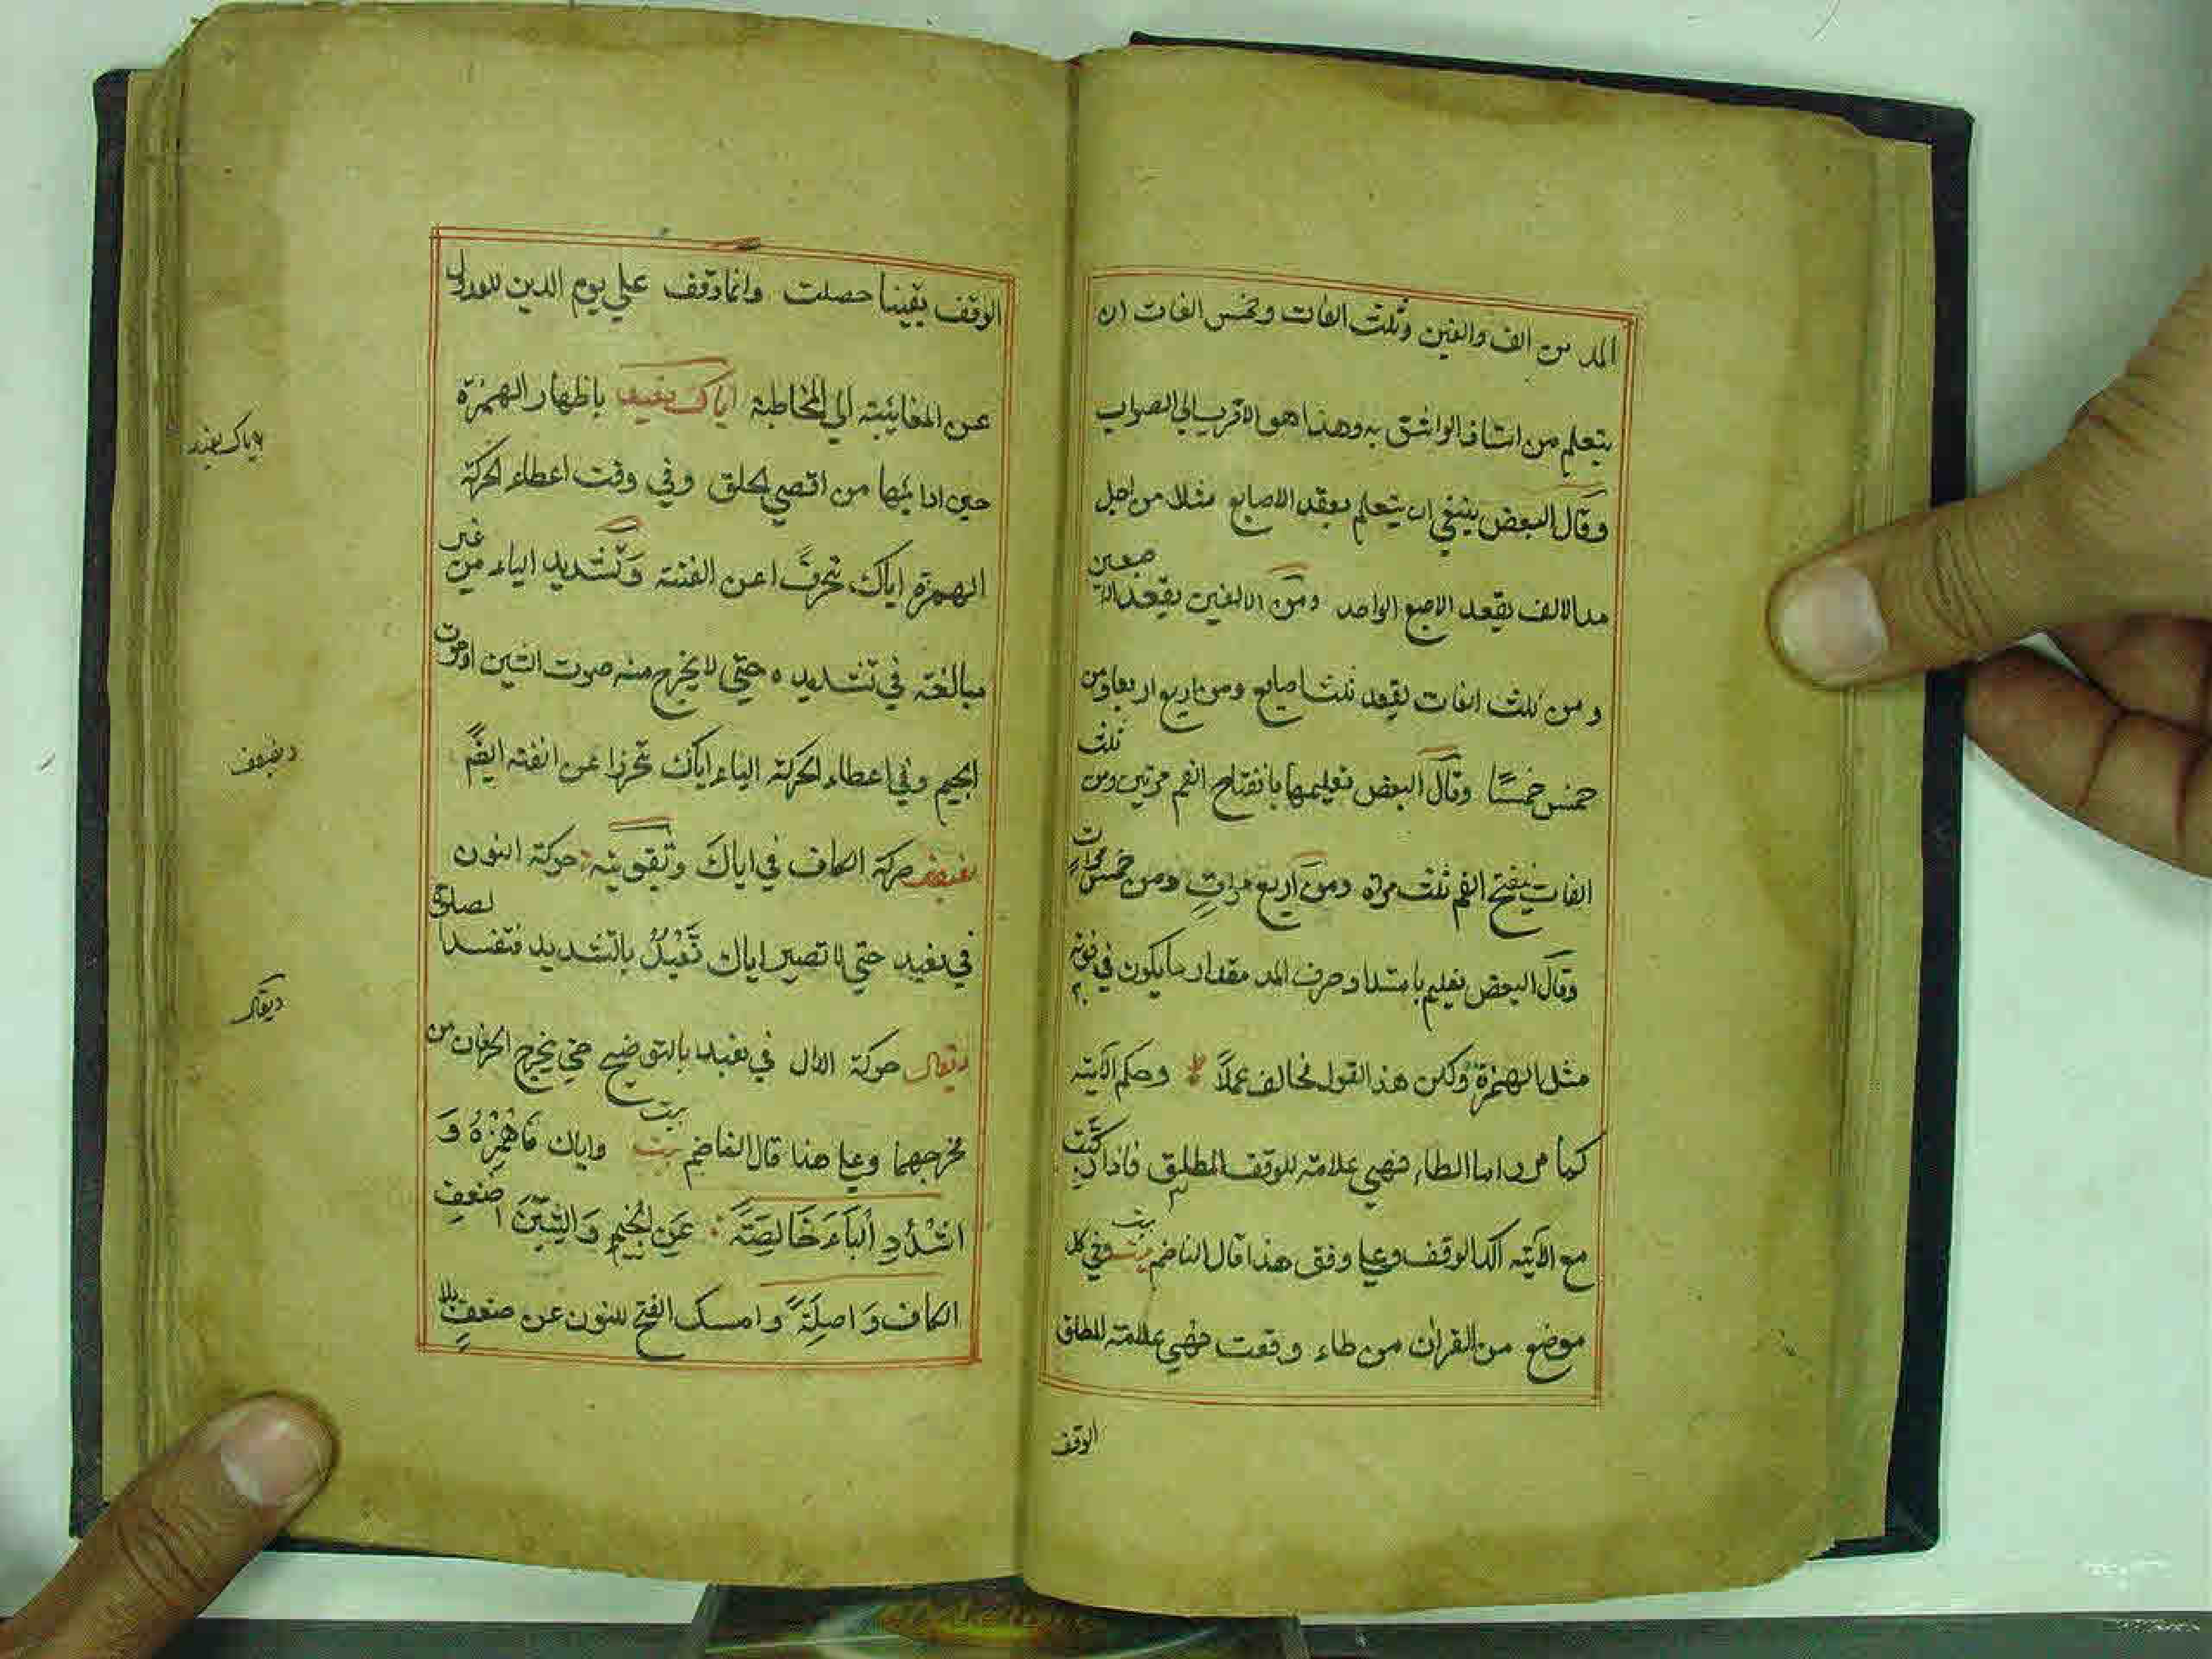 المد من الف والفين وثلث الفات وخمس الفات ان
يتعلم من استاذ الواثق به وهذا هو الاقرب الي الصواب
وقال البعض ينبغي ان يتعلم بعقد الاصابع مثلا من اجل
مد الالف يعقد الاصبع الواحد ومن الالفين يعقد الاصبعين
ومن ثلث الفات يعقد ثلث اصابع ومن اربع اربعا ومن
خمس خمسًا وقال البعض تعليمها بانفتاح الفم مرتين ومن ثلث
الفات يفتح الفم ثلث مرة ومن اربع مرات ومن خمس مرات
وقال البعض تعليم بامتداد حرف المد مقدار ما يكون في قوته
مثل الهمزة ولكن هذا القول مخالف عملاً وحكم الآية
كما مر واما الطاء فهي علامة للوقف المطلق فاذا كتبت
مع الآية اكد الوقف وعلي وفق هذا قال الناضم بيت وفي كل
موضع من القران من طاء وقعت فهي علامة المطلق
الوقف
الوقف يقينا حصلت وانما وقف علي يوم الدين للعدول
عن المغايبة الي المخاطبة اياك نعبد باظهار الهمزة
حين ادائها من اقصي الحلق وفي وقت اعطاء الحركة
الهمزة اياك تحرفًا عن الغنة وتشديد الياء من غير
مبالغة في تشديده حتي لا يخرج منه صوت الشين او صوت
الجيم وفي اعطاء الحركة الياء اياك تحرزا عن الغنة ايضًا
حركة الكاف في اياك وتقويته حركة النون
في نعبد حتي لا تصير اياك نَّعْبُدُ بالتشديد فتفسد الصلوة
حركة الدال في نعبد بالتوضيح حتي يخرج الحرفان من
مخرجهما وعلي هذا قال الناضم بيت واياك فاهمزه و
اشْدُدِ الْيَاءَ خَالِصَةً عَنِ الجيمِ وَالشينَ اضعف
الكاف واصلةً وامسك الفتح للنون عن ضعف بلا